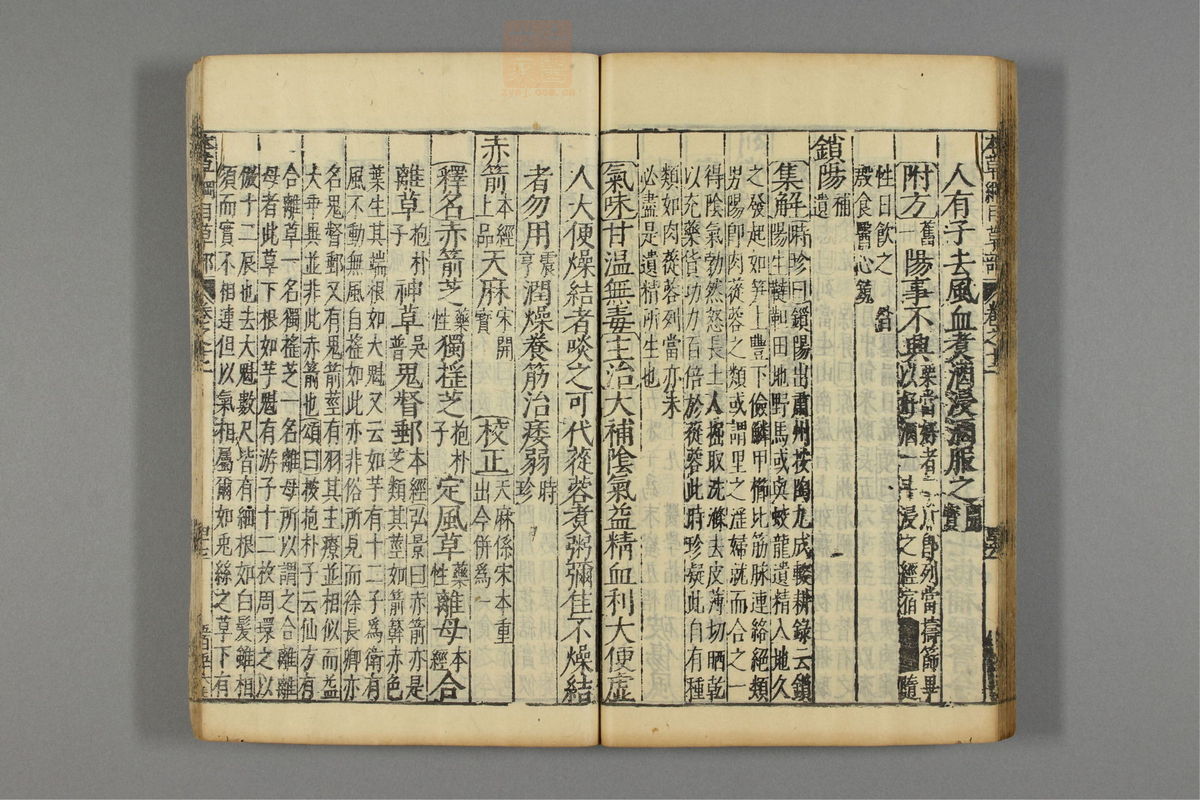 本草綱目草部 卷之十二
人有子去風血煮酒浸酒服之
附方舊一陽事不興
性日飲之
殷食醫心鏡
鎖陽補遺
集解時珍曰鎖陽出肅州按陶九成輟耕錄云鎖
陽生韃靼田地野馬或與蛟龍遺精入地久
之發起如笋上豐下儉鱗甲櫛比筋脉連絡絕類
男陽即肉蓯蓉之類或謂里之淫婦就而合之一
得陰氣勃然怒長土人掘取洗滌去皮薄切晒乾
以充藥貨功力百倍於蓯蓉此時珍疑此自有種
類如肉蓯蓉列當亦未
必盡是遺精所生也
氣味甘温無毒主治大補陰氣益精血利大便虛
人大便燥結者啖之可代蓯蓉煮粥彌佳不燥結
者勿用震亨潤燥養筋治痿弱時珍
赤箭本經上品天麻宋開寶 校正天麻係宋本重出今併爲一
釋名赤箭芝藥性獨搖芝抱朴子定風草藥性離母本經合
離草抱朴子神草吳普鬼督郵本經弘景曰赤箭亦是
芝類其莖如箭簳赤色
葉生其端根如人魁又云如芋有十二子爲衛有
風不動無風自搖如此亦非俗所見而徐長卿亦
名鬼督郵又有鬼箭莖有羽其主療並相似而益
大乖異並非此赤箭也頌曰按抱朴子云仙方有
合離草一名獨搖芝一名離母所以謂之合離離
母者此草下根如芋魁有游子十二枚周環之以
儀十二辰也去大魁數尺皆有細根如白髮雖相
須而實不相連但以氣相屬爾如兎絲之草下有
本草綱目草部 卷之十二